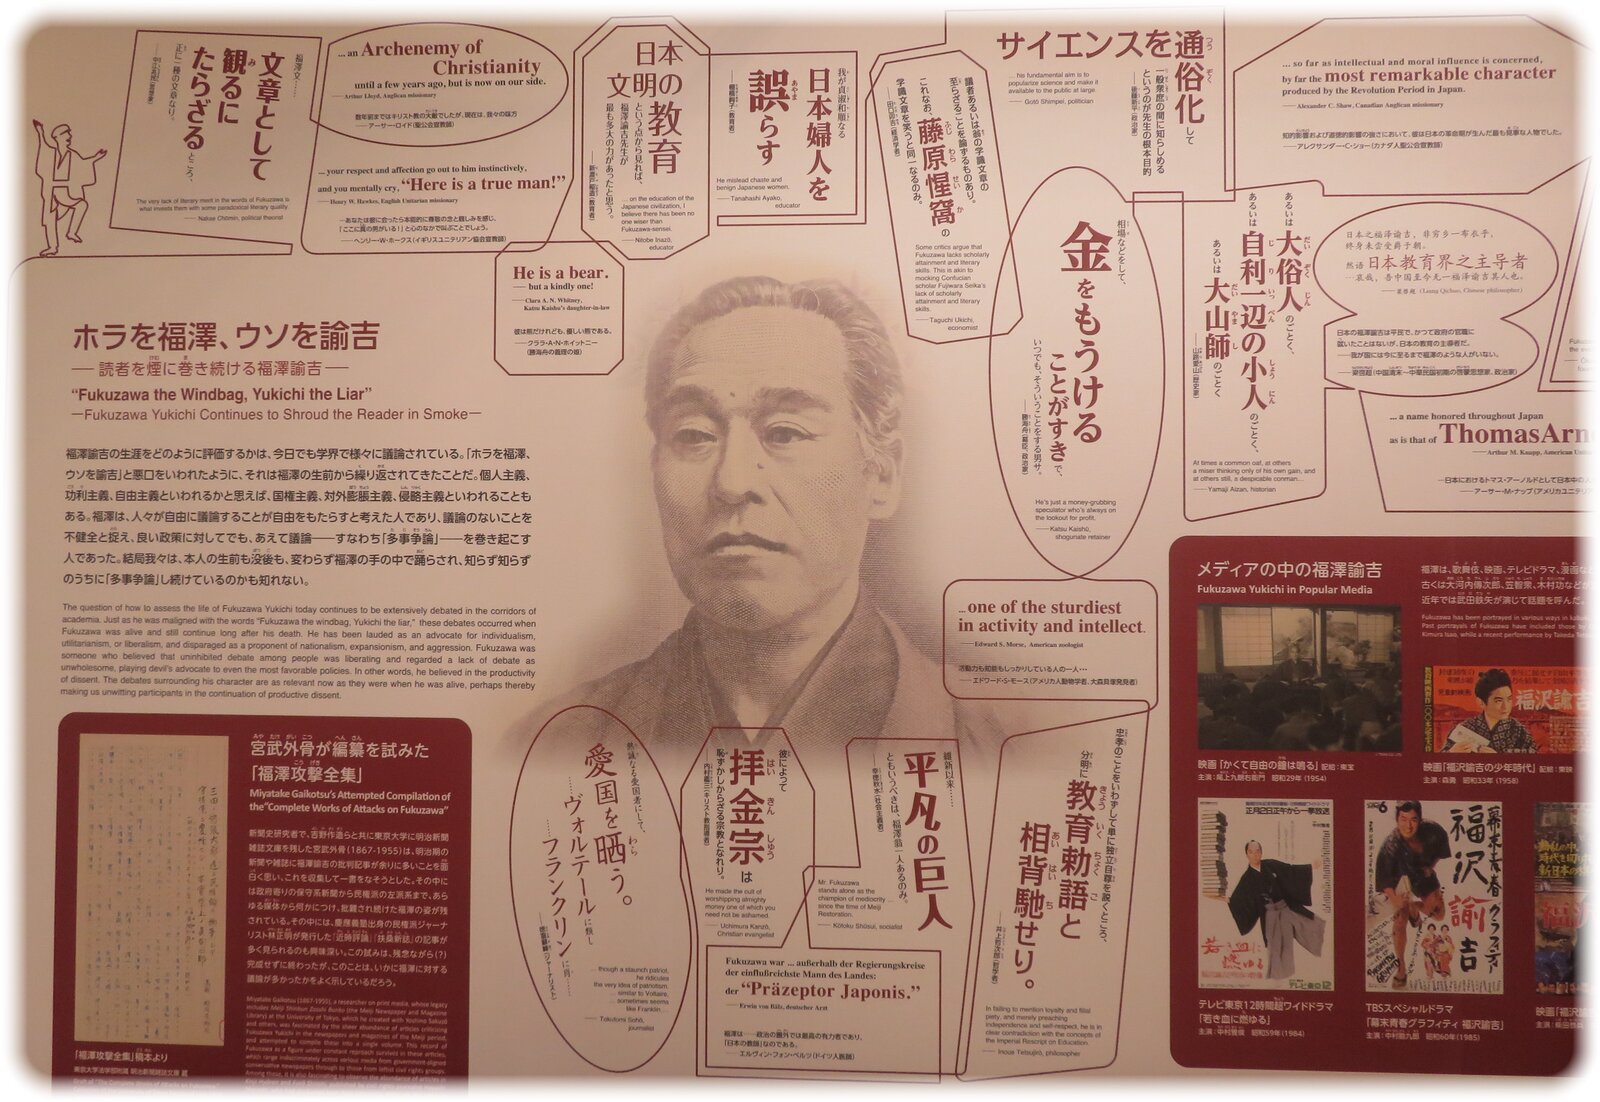 福澤文……
文章として
観るに
たらざる
ところ、
正に一種の文章なり。
The very lack of literary merit in the words of Fukuzawa is
what invests them with some paradoxical literary quality.
— Nakae Chōmin, political theorist
... an Archenemy of
Christianity
until a few years ago, but is now on our side.
—Arthur Lloyd, Anglican missionary
数年前まではキリスト教の大敵でしたが、現在は、我々の味方
——アーサー・ロイド(聖公会宣教師)
... your respect and affection go out to him instinctively,
and you mentally cry, “Here is a true man!”
—Henry W. Hawkes, English Unitarian missionary
…あなたは彼に会ったら本能的に尊敬の念と親しみを感じ、
「ここに真の男がいる!」と心のなかで叫ぶことでしょう。
——ヘンリー・W・ホークス(イギリスユニテリアン協会宣教師)
日本の教育
文明
という点から見れば、
福澤諭吉先生が
最も多大の力があったと思う。
——新渡戸稲造(教育者)
... on the education of the
Japanese civilization, I
believe there has been no
one wiser than
Fukuzawa-sensei.
— Nitobe Inazō,
educator
我が貞淑和順なる
日本婦人を
誤らす
——棚橋絢子(教育者)
He mislead chaste and
benign Japanese women.
— Tanahashi Ayako,
educator
議者あるいは翁の学識文章の
至らざることを論ずるものあり。
これなお、藤原惺窩の
学識文章を笑うと同一なるのみ。
——田口卯吉(経済学者)
Some critics argue that
Fukuzawa lacks scholarly
attainment and literary
skills. This is akin to
mocking Confucian
scholar Fujiwara Seika's
lack of scholarly
attainment and literary
skills.
— Taguchi Ukichi,
economist
サイエンスを通俗化して
一般衆庶の間に知らしめる
というのが先生の根本目的
——後藤新平(政治家)
... his fundamental aim is to
popularize science and make it
available to the public at large.
— Gotō Shimpei, politician
... so far as intellectual and moral influence is concerned,
by far the most remarkable character
produced by the Revolution Period in Japan.
—Alexander C. Shaw, Canadian Anglican missionary
知的影響および道徳的影響の強さにおいて、彼は日本の革命期が生んだ最も見事な人物でした。
——アレクサンダー・C・ショー(カナダ人聖公会宣教師)
He is a bear.
— but a kindly one!
— Clara A. N. Whitney,
Katsu Kaishu's daughter-in-law
彼は熊だけれども、優しい熊である。
——クララ・A・N・ホイットニー
(勝海舟の義理の娘)
相場などをして、
金をもうける
ことがすきで、
いつでも、そういうことをする男サ。
——勝海舟(幕臣、政治家)
He's just a money-grubbing
speculator who's always on
the lookout for profit.
— Katsu Kaishū,
shogunate retainer
あるいは大俗人のごとく、
あるいは自利一辺の小人のごとく、
あるいは大山師のごとく
——山路愛山(歴史家)
At times a common oaf, at others
a miser thinking only of his own gain, and
at others still, a despicable conman...
— Yamaji Aizan, historian
日本之福泽谕吉,非穷乡一布衣乎,
终身未尝受爵于朝。
然语日本教育界之主导者
(Liang Qichao, Chinese philosopher)
日本の福澤諭吉は平民で、かつて政府の官職に
就いたことはないが、日本の教育の主導者だ。
…我が国には今に至るまで福澤のような人がいない。
——梁啓超(中国清末〜中華民国初期の啓蒙思想家、政治家)
... a name honored throughout Japan
as is that of Thomas Arn
—Arthur M. Knapp, American Unit
…日本におけるトマス・アーノルドとして日本中の人
——アーサー・M・ナップ(アメリカユニテリア
ホラを福澤、ウソを諭吉
— 読者を煙に巻き続ける福澤諭吉 —
“Fukuzawa the Windbag, Yukichi the Liar”
—Fukuzawa Yukichi Continues to Shroud the Reader in Smoke—
福澤諭吉の生涯をどのように評価するかは、今日でも学界で様々に議論されている。「ホラを福澤、
ウソを諭吉」と悪口をいわれたように、それは福澤の生前から繰り返されてきたことだ。個人主義、
功利主義、自由主義といわれるかと思えば、国権主義、対外膨脹主義、侵略主義といわれることも
ある。福澤は、人々が自由に議論することが自由をもたらすと考えた人であり、議論のないことを
不健全と捉え、良い政策に対してでも、あえて議論——すなわち「多事争論」——を巻き起こす
人であった。結局我々は、本人の生前も没後も、変わらず福澤の手の中で踊らされ、知らず知らず
のうちに「多事争論」し続けているのかも知れない。
The question of how to assess the life of Fukuzawa Yukichi today continues to be extensively debated in the corridors of
academia. Just as he was maligned with the words “Fukuzawa the windbag, Yukichi the liar,” these debates occurred when
Fukuzawa was alive and still continue long after his death. He has been lauded as an advocate for individualism,
utilitarianism, or liberalism, and disparaged as a proponent of nationalism, expansionism, and aggression. Fukuzawa was
someone who believed that uninhibited debate among people was liberating and regarded a lack of debate as
unwholesome, playing devil's advocate to even the most favorable policies. In other words, he believed in the productivity
of dissent. The debates surrounding his character are as relevant now as they were when he was alive, perhaps thereby
making us unwitting participants in the continuation of productive dissent.
... one of the sturdiest
in activity and intellect.
—Edward S. Morse, American zoologist
活動力も知能もしっかりしている人の一人…
——エドワード・S・モース(アメリカ人動物学者、大森貝塚発見者)
宮武外骨が編纂を試みた
「福澤攻撃全集」
Miyatake Gaikotsu's Attempted Compilation of
the“Complete Works of Attacks on Fukuzawa”
新聞史研究者で、吉野作造らと共に東京大学に明治新聞
雑誌文庫を残した宮武外骨(1867-1955)は、明治期の
新聞や雑誌に福澤諭吉の批判記事が余りに多いことを面
白く思い、これを収集して一書をなそうとした。その中に
は政府寄りの保守系新聞から民権派の左派系まで、あら
ゆる媒体から何かにつけ、批難され続けた福澤の姿が残
されている。その中には、慶應義塾出身の民権派ジャーナ
リスト林正明が発行した「近時評論」「扶桑新誌」の記事が
多く見られるのも興味深い。この試みは、残念ながら(?)
完成せずに終わったが、このことは、いかに福澤に対する
議論が多かったかをよく示しているだろう。
Miyatake Gaikotsu (1867-1955), a researcher on print media, whose legacy
includes Meiji Shinbun Zasshi Bunko (the Meiji Newspaper and Magazine
Library) at the University of Tokyo, which he created with Yoshino Sakuzō
and others, was fascinated by the sheer abundance of articles criticizing
Fukuzawa Yukichi in the newspapers and magazines of the Meiji period,
and attempted to compile these into a single volume. This record of
Fukuzawa as a figure under constant reproach survives in these articles,
「福澤攻撃全集」稿本より
東京大学法学部附属 明治新聞雑誌文庫 蔵
熱誠なる愛国者にして、
愛国を晒う。
……ヴォルテールに類し
……フランクリンに肖……
——徳富蘇峰(ジャーナリスト)
... though a staunch patriot,
he ridicules
the very idea of patriotism.
... similar to Voltaire,
... sometimes seems
like Franklin ...
— Tokutomi Sohō,
journalist
彼によって
拝金宗は
恥ずかしからざる宗教となれり。
——内村鑑三(キリスト教指導者)
He made the cult of
worshipping almighty
money one of which you
need not be ashamed.
— Uchimura Kanzō,
Christian evangelist
維新以来……
平凡の巨人
ともいうべきは、福澤翁一人あるのみ。
——幸徳秋水(社会主義者)
Mr. Fukuzawa
stands alone as the
champion of mediocrity ...
since the time of Meiji
Restoration.
— Kōtoku Shūsui, socialist
Fukuzawa war ... außerhalb der Regierungskreise
der einflußreichste Mann des Landes:
der “Präzeptor Japonis.”
— Erwin von Bälz, deutscher Arzt
福澤は…政治の圏外では最高の有力者であり、
「日本の教師」なのである。
——エルヴィン・フォン・ベルツ(ドイツ人医師)
忠孝のことをいわずして単に独立自尊を説くところ、
分明に教育勅語と
相背馳せり。
——井上哲次郎(哲学者)
In failing to mention loyalty and filial
piety, and merely preaching
independence and self-respect, he is in
clear contradiction with the concepts of
the Imperial Rescript on Education.
— Inoue Tetsujirō, philosopher
メディアの中の福澤諭吉
Fukuzawa Yukichi in Popular Media
福澤は、歌舞伎、映画、テレビドラマ、漫画な
古くは大河内傳次郎、笠智衆、木村功などが
近年では武田鉄矢が演じて話題を呼んだ。
Fukuzawa has been portrayed in various ways in kabuk
Past portrayals of Fukuzawa have included those by
Kimura Isao, while a recent performance by Takeda Tetsu
映画「かくて自由の鐘は鳴る」 配給:東宝
主演:尾上九朗右衛門 昭和29年(1954)
福沢諭吉
映画「福沢諭吉の少年時代」 配給:東映
主演:森勇 昭和33年(1958)
正月2日正午から一挙放送
若き血に
燃ゆる
テレビ東京12
テレビ東京12時間超ワイドドラマ
「若き血に燃ゆる」
主演:中村雅俊 昭和59年(1984)
幕末青春グラフィティ
福沢諭吉
TBSスペシャルドラマ
「幕末青春グラフィティ 福沢諭吉」
主演:中村勘九郎 昭和60年(1985)
映画「福沢